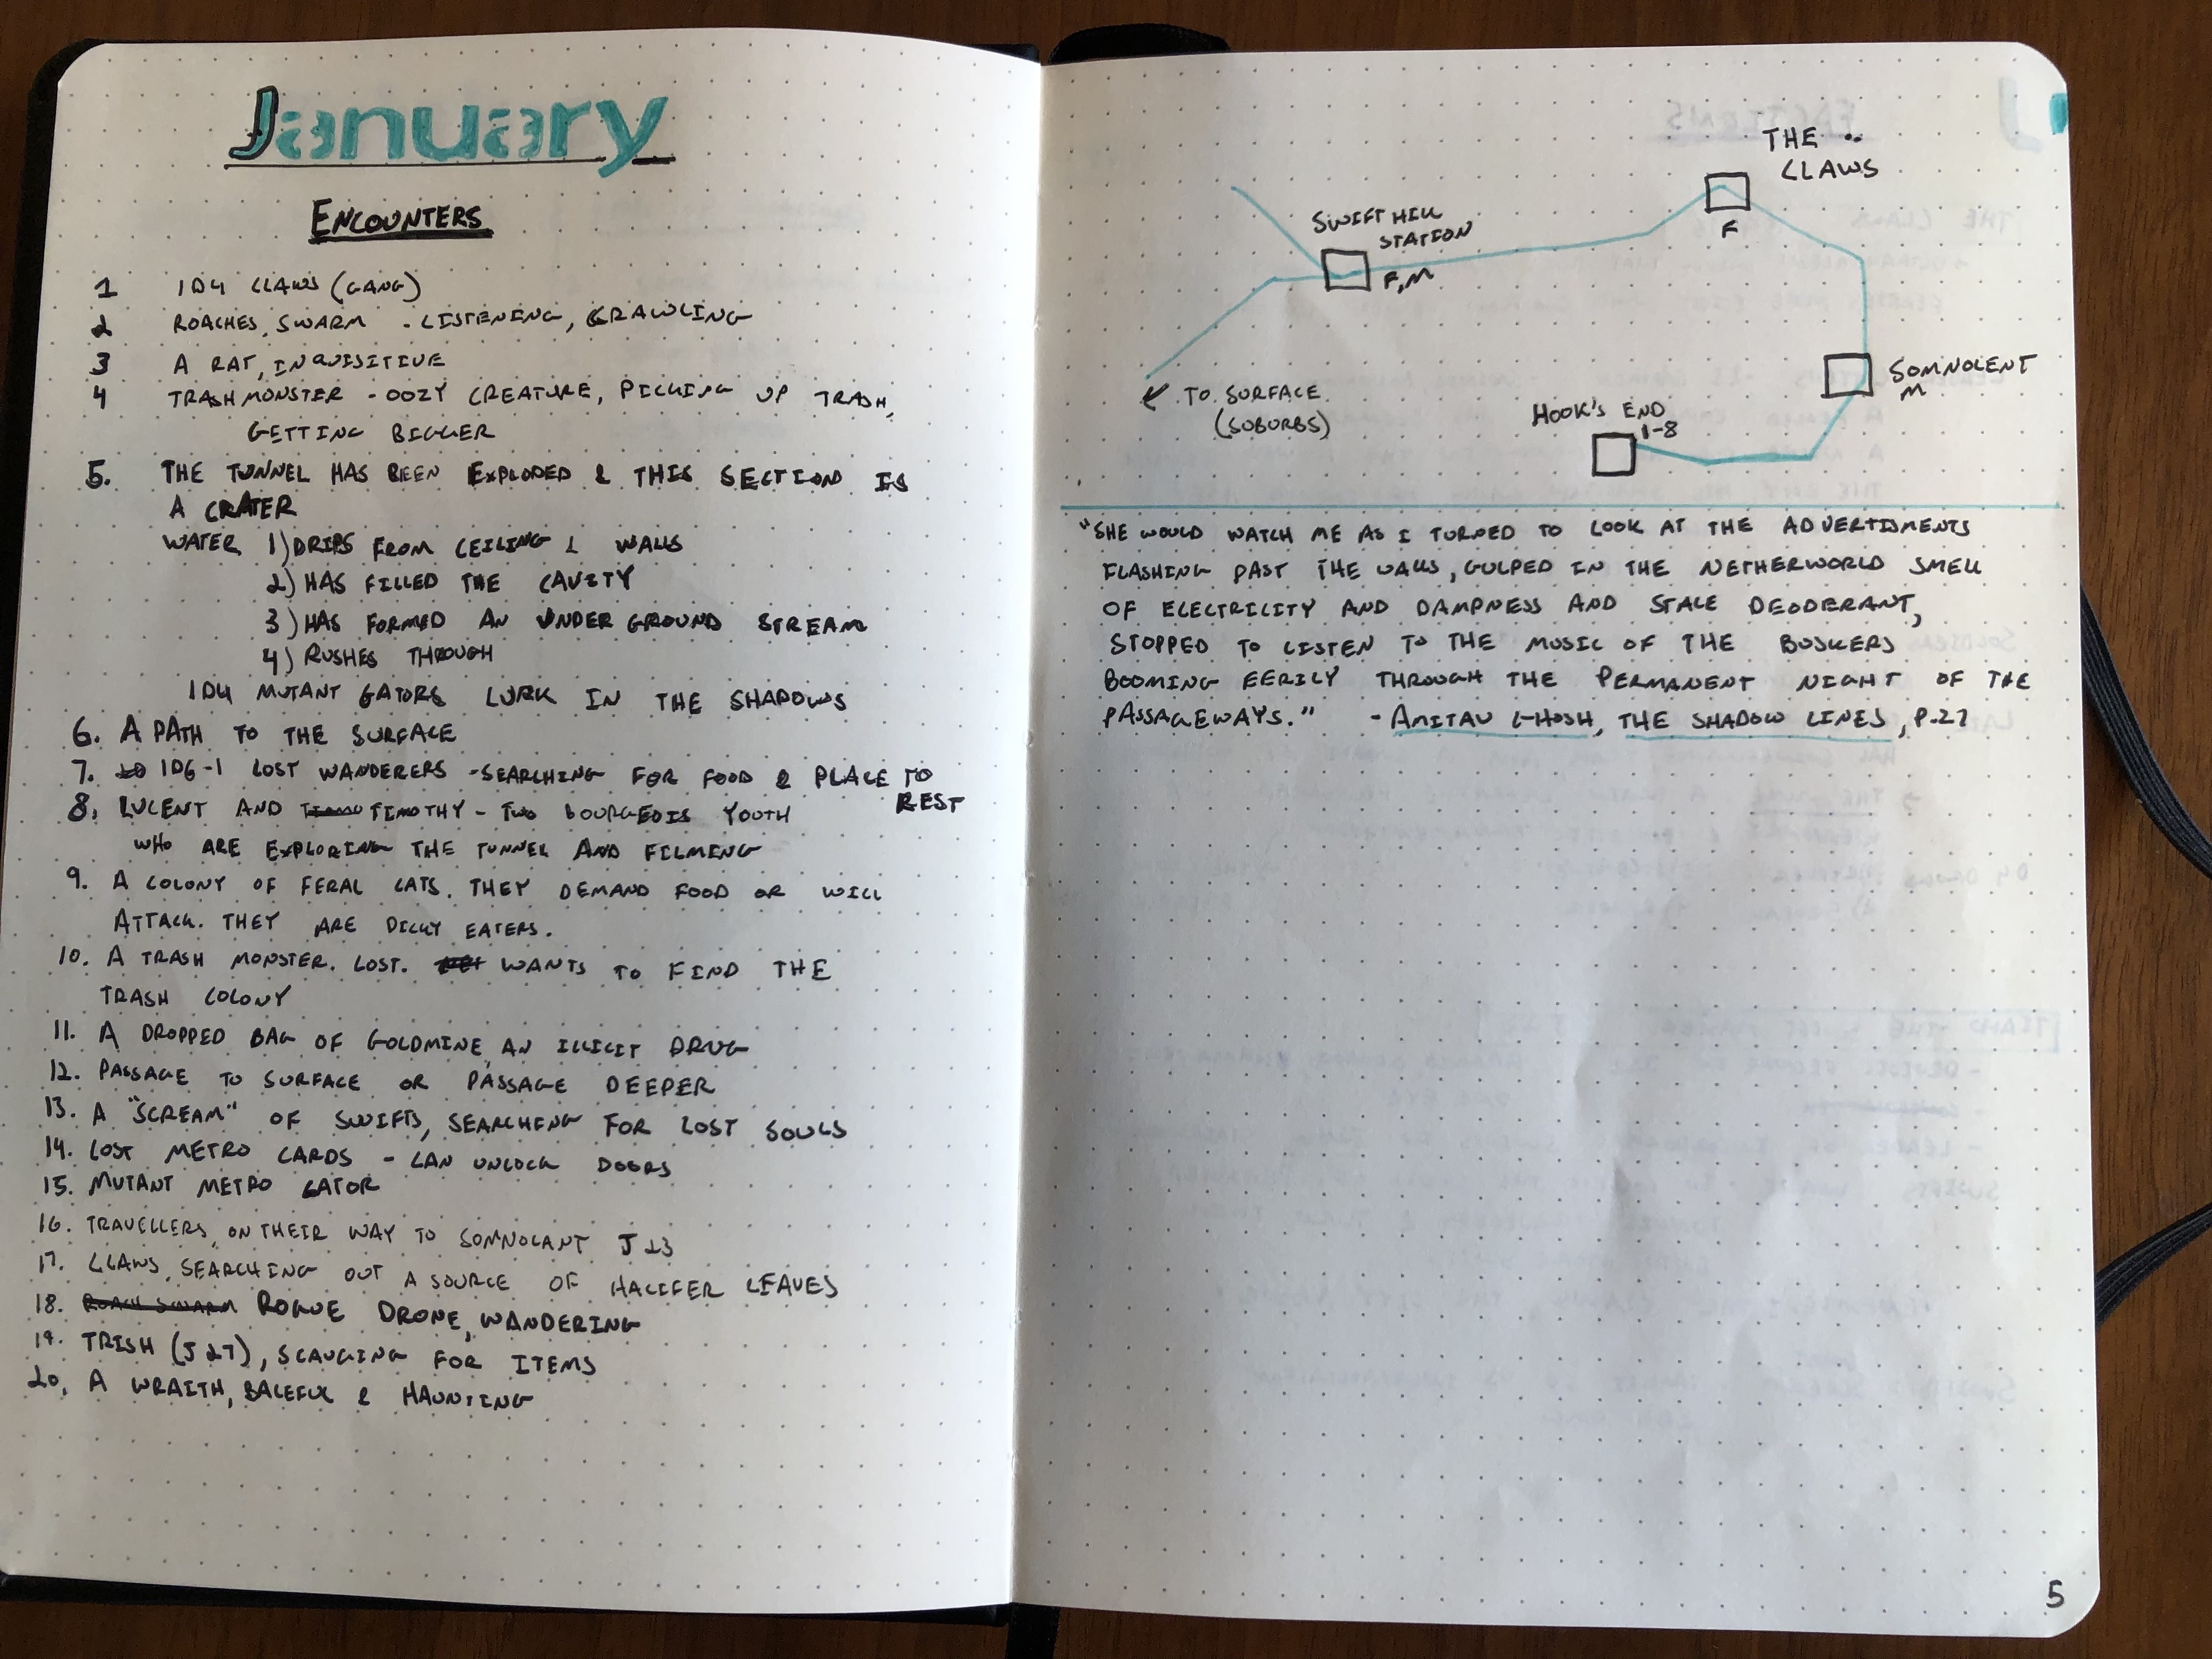 January
ENCOUNTERS
1 1D4 CLAWS (GANG)
2 ROACHES, SWARM - LISTENING, CRAWLING
3 A RAT, INQUISITIVE
4 TRASHMONSTER - OOZY CREATURE, PICKING UP TRASH,
GETTING BIGGER
5. THE TUNNEL HAS BEEN EXPLODED & THIS SECTION IS
A CRATER
WATER 1) DRIPS FROM CEILING & WALLS
2) HAS FILLED THE CAVITY
3) HAS FORMED AN UNDERGROUND STREAM
4) RUSHES THROUGH
1D4 MUTANT GATORS LURK IN THE SHADOWS
6. A PATH TO THE SURFACE
7. 1D6-1 LOST WANDERERS - SEARCHING FOR FOOD & PLACE TO
REST
8. LUCENT AND TIMOTHY - TWO BOURGEOIS YOUTH
WHO ARE EXPLORING THE TUNNEL AND FILMING
9. A COLONY OF FERAL CATS. THEY DEMAND FOOD OR WILL
ATTACK. THEY ARE PICKY EATERS.
10. A TRASH MONSTER. LOST. WANTS TO FIND THE
TRASH COLONY
11. A DROPPED BAG OF GOLDMINE, AN ILLICIT DRUG
12. PASSAGE TO SURFACE OR PASSAGE DEEPER
13. A "SCREAM" OF SWIFTS, SEARCHING FOR LOST SOULS
14. LOST METRO CARDS - CAN UNLOCK DOORS
15. MUTANT METRO GATOR
16. TRAVELLERS, ON THEIR WAY TO SOMNOLANT J23
17. CLAWS, SEARCHING OUT A SOURCE OF HALIFER LEAVES
18. ROACH SWARM ROGUE DRONE, WANDERING
19. TRISH (J27), SCAVGING FOR ITEMS
20. A WRAITH, BALEFUL & HAUNTING
THE
CLAWS
F
SWIFT HILL
STATION
F, M
SOMNOLENT
M
TO SURFACE
(SUBURBS)
HOOK'S END
1-8
"SHE WOULD WATCH ME AS I TURNED TO LOOK AT THE ADVERTISMENTS
FLASHING PAST THE WALLS, GULPED IN THE NETHERWORLD SMELL
OF ELECTRICITY AND DAMPNESS AND STALE DEODERANT,
STOPPED TO LISTEN TO THE MUSIC OF THE BUSKERS
BOOMING EERILY THROUGH THE PERMANENT NIGHT OF THE
PASSAGEWAYS." - AMITAV GHOSH, THE SHADOW LINES, P.27
5